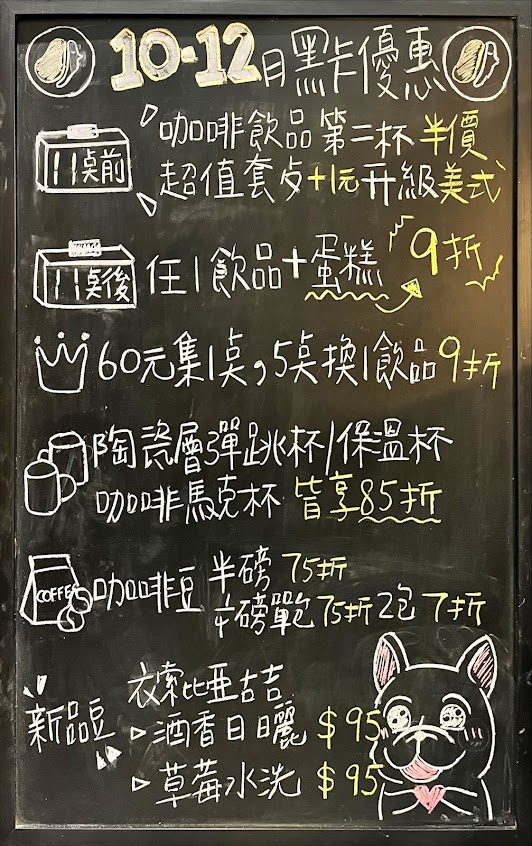 10-12月點卡優惠
11點前
咖啡飲品第二杯半價
超值套歺+1元升級美式
11點後
任1飲品+蛋糕9折
60元集1點,5點換1飲品9折
陶瓷層彈跳杯/保溫杯
咖啡馬克杯 皆享85折
COFFEE
咖啡豆 半磅 75折
¼磅單包 75折 2包 7折
新品豆
衣索比亞古吉
酒香日曬 $95
草莓水洗 $95